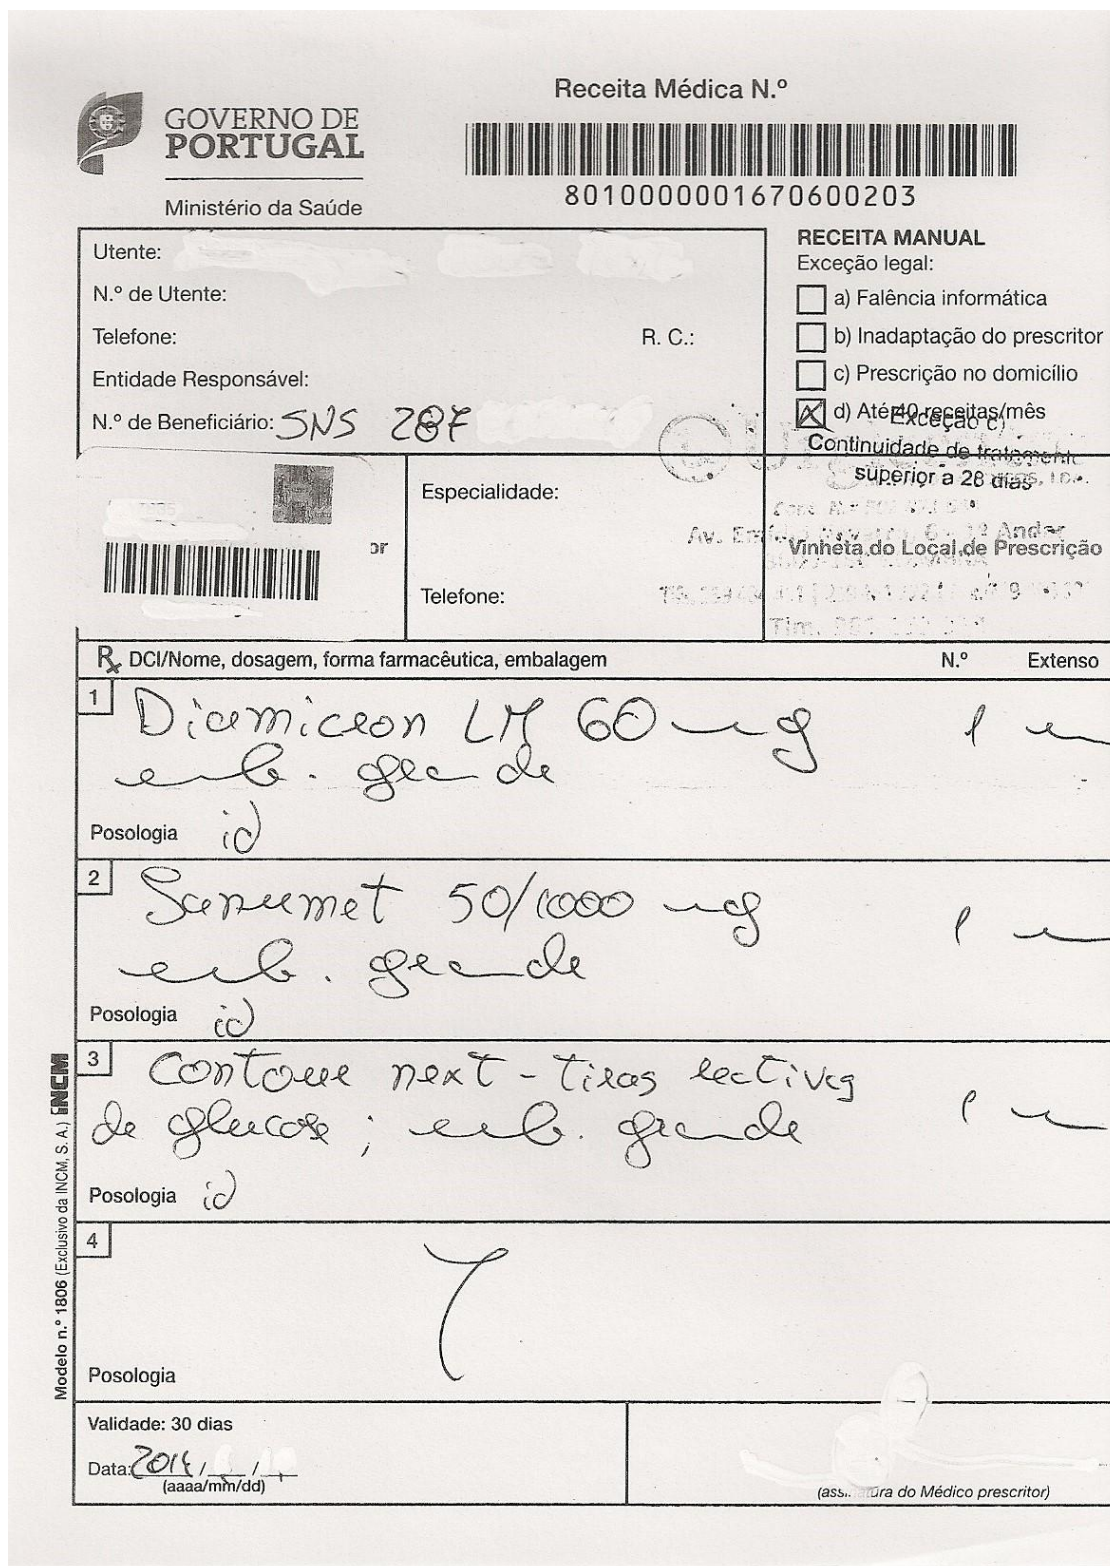 Receita Médica N.º
GOVERNO DE
PORTUGAL
Ministério da Saúde
8010000001670600203
Utente:
N.º de Utente:
Telefone: R. C.:
Entidade Responsável:
N.º de Beneficiário: SNS 287
RECEITA MANUAL
Exceção legal:
a) Falência informática
b) Inadaptação do prescritor
c) Prescrição no domicílio
d) Até 40 receitas/mês
Exceção c)
Continuidade de tratamento
superior a 28 dias
or
Especialidade:
Telefone:
Vinheta do Local de Prescrição
Rx DCI/Nome, dosagem, forma farmacêutica, embalagem N.º Extenso
1 Diamicron LM 60 mg 1 um
emb. grande
Posologia id
2 Janumet 50/1000 mg 1 um
emb. grande
Posologia id
3 Contour next - tiras reactivas
de glucose; emb. grande 1 um
Posologia id
4
Posologia
Modelo n.º 1806 (Exclusivo da INCM, S. A.) INCM
Validade: 30 dias
Data: 2014 / /
(aaaa/mm/dd)
do Médico prescritor)